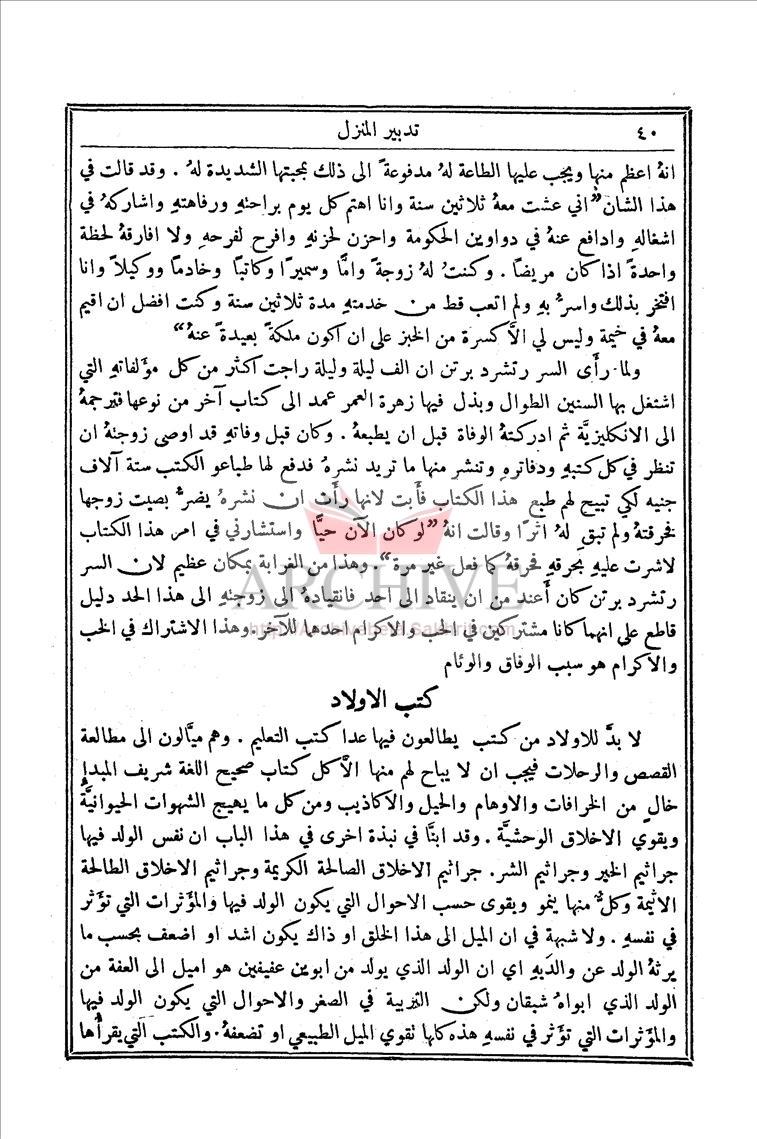 ٤٠ تدبير المنزل
انهُ اعظم منها ويجب عليها الطاعة لهُ مدفوعةً الى ذلك بمحبتها الشديدة لهُ . وقد قالت في
هذا الشان "اني عشت معهُ ثلاثين سنة وانا اهتم كل يوم براحتهِ ورفاهتهِ واشاركهُ في
اشغالهِ وادافع عنهُ في دواوين الحكومة واحزن لحزنهِ وافرح لفرحهِ ولا افارقهُ لحظة
واحدةً اذا كان مريضًا . وكنتُ لهُ زوجةً وامًّا وسميرًا وكاتبًا وخادمًا ووكيلاً وانا
افتخر بذلك واسرُّ بهِ ولم اتعب قط من خدمتهِ مدة ثلاثين سنة وكنت افضل ان اقيم
معهُ في خيمة وليس لي الاَّ كسرة من الخبز على ان اكون ملكةً بعيدةً عنهُ"
ولما رأَى السر رتشرد برتن ان الف ليلة وليلة راجت اكثر من كل مؤَلفاتهِ التي
اشتغل بها السنين الطوال وبذل فيها زهرة العمر عمد الى كتاب آخر من نوعها فترجمهُ
الى الانكليزيَّة ثم ادركتهُ الوفاة قبل ان يطبعهُ . وكان قبل وفاتهِ قد اوصى زوجتهُ ان
تنظر في كل كتبهِ ودفاترهِ وتنشر منها ما تريد نشرهُ فدفع لها طباعو الكتب ستة آلاف
جنيه لكي تبيح لهم طبع هذا الكتاب فأَبت لانها رأَت ان نشرهُ يضرُّ بصيت زوجها
فحرقتهُ ولم تبقِ لهُ اثرًا وقالت انهُ "لو كان الآن حيًّا واستشارني في امر هذا الكتاب
لاشرت عليهِ بحرقهِ فحرقهُ كما فعل غير مرة". وهذا من الغرابة بمكان عظيم لان السر
رتشرد برتن كان أَعند من ان ينقاد الى احد فانقيادهُ الى زوجتهِ الى هذا الحد دليل
قاطع على انهما كانا مشتركين في الحب والاكرام احدهما للآخر. وهذا الاشتراك في الحب
والاكرام هو سبب الوفاق والوئام
كتب الاولاد
لا بدَّ للاولاد من كتب يطالعون فيها عدا كتب التعليم . وهم ميَّالون الى مطالعة
القصص والرحلات فيجب ان لا يباح لهم منها الاَّ كل كتاب صحيح اللغة شريف المبدإِ
خالٍ من الخرافات والاوهام والحيل والاكاذيب ومن كل ما يهيج الشهوات الحيوانيَّة
ويقوي الاخلاق الوحشيَّة . وقد ابنَّا في نبذة اخرى في هذا الباب ان نفس الولد فيها
جراثيم الخير وجراثيم الشر. جراثيم الاخلاق الصالحة الكريمة وجراثيم الاخلاق الطالحة
الاثيمة وكلٌّ منها ينمو ويقوى حسب الاحوال التي يكون الولد فيها والمؤَثرات التي تؤَثر
في نفسهِ . ولا شبهة في ان الميل الى هذا الخلق او ذاك يكون اشد او اضعف بحسب ما
يرثهُ الولد عن والدَيهِ اي ان الولد الذي يولد من ابوين عفيفين هو اميل الى العفة من
الولد الذي ابواهُ شبقان ولكن التربية في الصغر والاحوال التي يكون الولد فيها
والمؤَثرات التي تؤَثر في نفسهِ هذه كلها تقوي الميل الطبيعي او تضعفهُ . والكتب التي يقرأُها
ARCHIVE